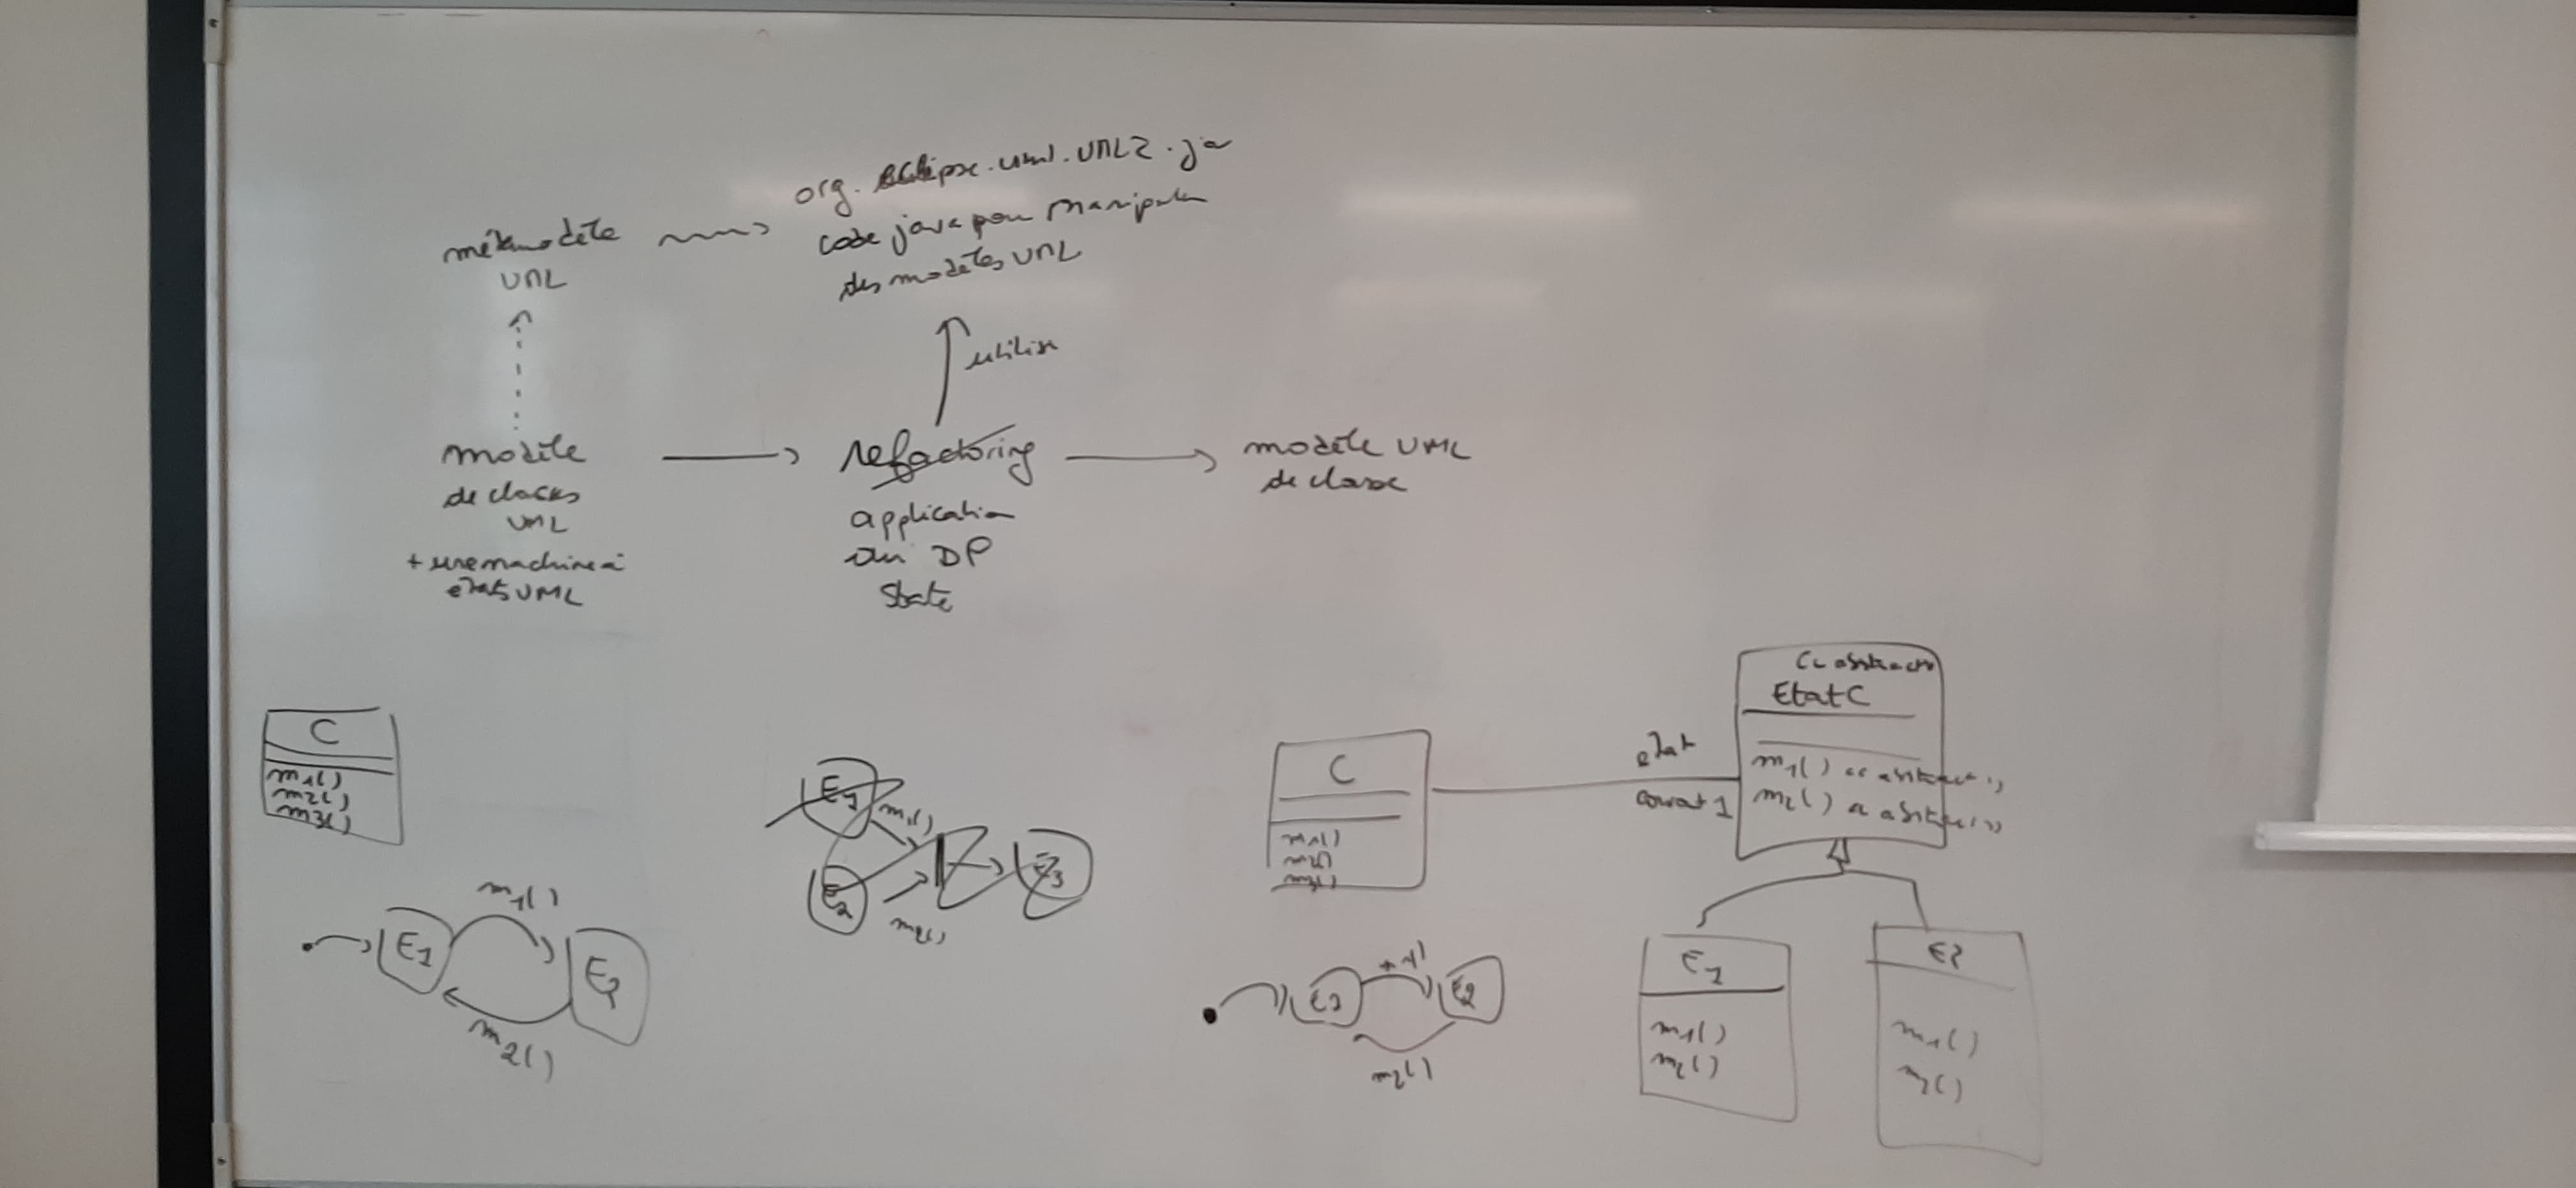 org.eclipse.uml.UML2.ja
code java pour manipuler
des modèles UML
métamodèle
UML
utilise
modèle
de classes
UML
+ une machine à
états UML
refactoring
application
du DP
State
modèle UML
de classe
C
m1()
m2()
m3()
E1
E2
m1()
m2()
E1
m1()
E2
m2()
E3
C
m1()
m2()
m3()
état
courant 1
<< abstract
EtatC
m1() << abstract >>
m2() << abstract >>
E1
m1()
m2()
E2
m1()
m2()
E1
E2
m2()